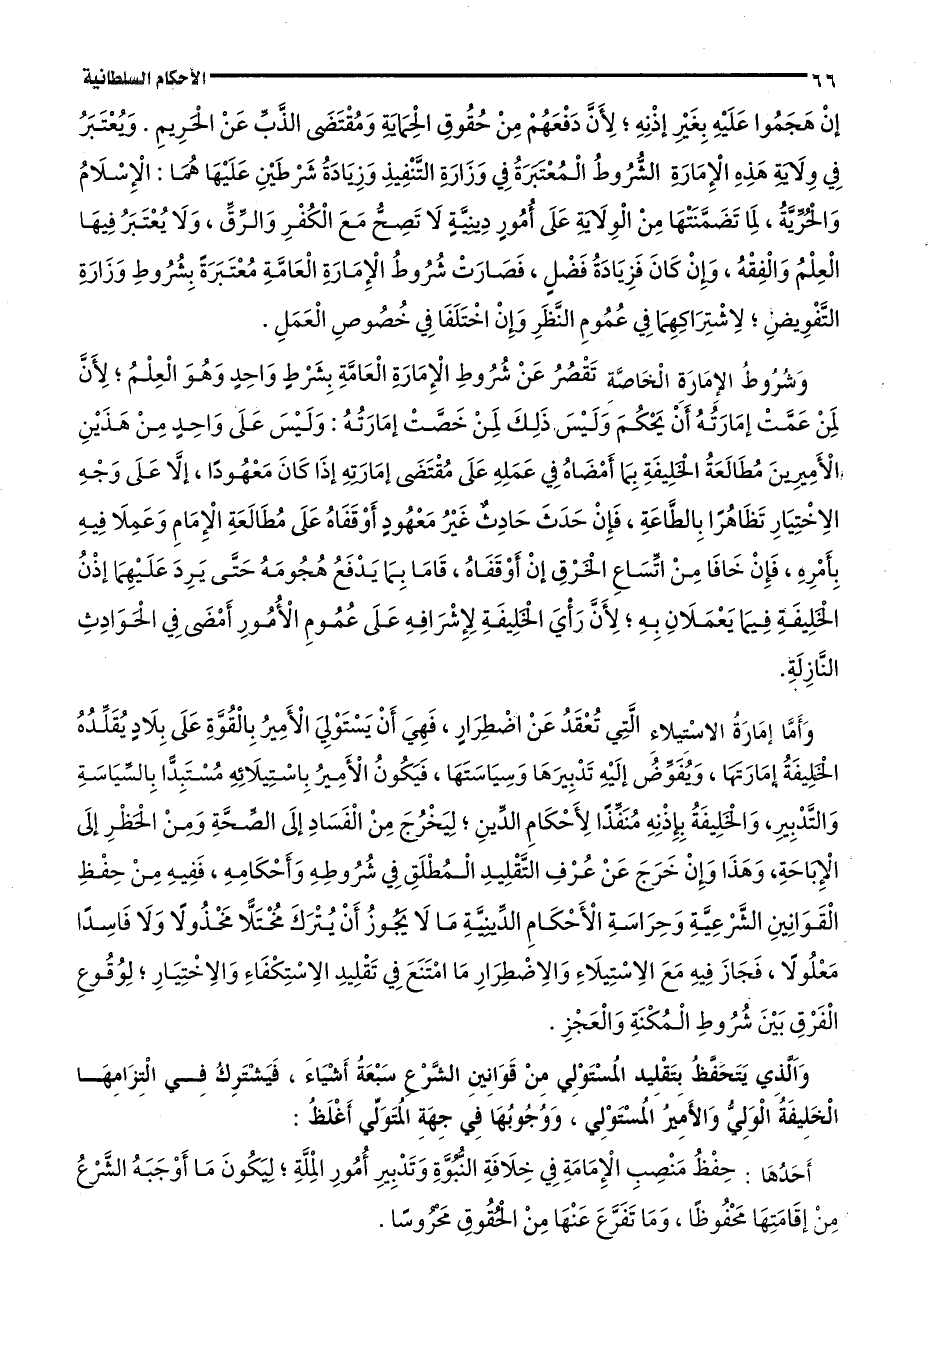 ٦٦ الأحكام السلطانية
إِنْ هَجَمُوا عَلَيْهِ بِغَيْرِ إِذْنِهِ ؛ لِأَنَّ دَفْعَهُمْ مِنْ حُقُوقِ الْحِمَايَةِ وَمُقْتَضَى الذَّبِّ عَنْ الْحَرِيمِ . وَيُعْتَبَرُ
فِي وِلَايَةِ هَذِهِ الْإِمَارَةِ الشُّرُوطُ الْمُعْتَبَرَةُ فِي وَزَارَةِ التَّنْفِيذِ وَزِيَادَةُ شَرْطَيْنِ عَلَيْهَا هُمَا : الْإِسْلَامُ
وَالْحُرِّيَّةُ ، لِمَا تَضَمَّنَتْهَا مِنْ الْوِلَايَةِ عَلَى أُمُورٍ دِينِيَّةٍ لَا تَصِحُّ مَعَ الْكُفْرِ وَالرِّقِّ ، وَلَا يُعْتَبَرُ فِيهَا
الْعِلْمُ وَالْفِقْهُ ، وَإِنْ كَانَ فَزِيَادَةُ فَضْلٍ ، فَصَارَتْ شُرُوطُ الْإِمَارَةِ الْعَامَّةِ مُعْتَبَرَةً بِشُرُوطِ وَزَارَةِ
التَّفْوِيضِ ؛ لِاشْتِرَاكِهِمَا فِي عُمُومِ النَّظَرِ وَإِنْ اخْتَلَفَا فِي خُصُوصِ الْعَمَلِ .
وَشُرُوطُ الإِمَارَةِ الْخَاصَّةِ تَقْصُرُ عَنْ شُرُوطِ الْإِمَارَةِ الْعَامَّةِ بِشَرْطٍ وَاحِدٍ وَهُوَ الْعِلْمُ ؛ لِأَنَّ
لِمَنْ عَمَّتْ إِمَارَتُهُ أَنْ يَحْكُمَ وَلَيْسَ ذَلِكَ لِمَنْ خَصَّتْ إِمَارَتُهُ : وَلَيْسَ عَلَى وَاحِدٍ مِنْ هَذَيْنِ
الْأَمِيرِينَ مُطَالَعَةُ الْخَلِيفَةِ بِمَا أَمْضَاهُ فِي عَمَلِهِ عَلَى مُقْتَضَى إِمَارَتِهِ إِذَا كَانَ مَعْهُودًا ، إِلَّا عَلَى وَجْهِ
الِاخْتِيَارِ تَظَاهُرًا بِالطَّاعَةِ ، فَإِنْ حَدَثَ حَادِثٌ غَيْرُ مَعْهُودٍ أَوْقَفَاهُ عَلَى مُطَالَعَةِ الْإِمَامِ وَعَمِلَا فِيهِ
بِأَمْرِهِ ، فَإِنْ خَافَا مِنْ اتِّسَاعِ الْخَرْقِ إِنْ أَوْقَفَاهُ ، قَامَا بِمَا يَدْفَعُ هُجُومَهُ حَتَّى يَرِدَ عَلَيْهِمَا إِذْنُ
الْخَلِيفَةِ فِيمَا يَعْمَلَانِ بِهِ ؛ لِأَنَّ رَأْيَ الْخَلِيفَةِ لِإِشْرَافِهِ عَلَى عُمُومِ الْأُمُورِ أَمْضَى فِي الْحَوَادِثِ
النَّازِلَةِ.
وَأَمَّا إِمَارَةُ الاسْتِيلاءِ الَّتِي تُعْقَدُ عَنْ اضْطِرَارٍ ، فَهِيَ أَنْ يَسْتَوْلِيَ الْأَمِيرُ بِالْقُوَّةِ عَلَى بِلَادٍ يُقَلِّدُهُ
الْخَلِيفَةُ إِمَارَتَهَا ، وَيُفَوِّضُ إِلَيْهِ تَدْبِيرَهَا وَسِيَاسَتَهَا ، فَيَكُونُ الْأَمِيرُ بِاسْتِيلَائِهِ مُسْتَبِدًّا بِالسِّيَاسَةِ
وَالتَّدْبِيرِ، وَالْخَلِيفَةُ بِإِذْنِهِ مُنَفِّذًا لِأَحْكَامِ الدِّينِ ؛ لِيَخْرُجَ مِنْ الْفَسَادِ إِلَى الصِّحَّةِ وَمِنْ الْحَظْرِ إِلَى
الْإِبَاحَةِ، وَهَذَا وَإِنْ خَرَجَ عَنْ عُرْفِ التَّقْلِيدِ الْمُطْلَقِ فِي شُرُوطِهِ وَأَحْكَامِهِ ، فَفِيهِ مِنْ حِفْظِ
الْقَوَانِينِ الشَّرْعِيَّةِ وَحِرَاسَةِ الْأَحْكَامِ الدِّينِيَّةِ مَا لَا يَجُوزُ أَنْ يُتْرَكَ مُخْتَلًّا مَخْذُولًا وَلَا فَاسِدًا
مَعْلُولًا ، فَجَازَ فِيهِ مَعَ الِاسْتِيلَاءِ وَالِاضْطِرَارِ مَا امْتَنَعَ فِي تَقْلِيدِ الِاسْتِكْفَاءِ وَالِاخْتِيَارِ ؛ لِوُقُوعِ
الْفَرْقِ بَيْنَ شُرُوطِ الْمُكْنَةِ وَالْعَجْزِ .
وَالَّذِي يَتَحَفَّظُ بِتَقْلِيدِ الْمُسْتَوْلِي مِنْ قَوَانِينِ الشَّرْعِ سَبْعَةُ أَشْيَاءَ ، فَيَشْتَرِكُ فِي الْتِزَامِهَا
الْخَلِيفَةُ الْوَلِيُّ وَالْأَمِيرُ الْمُسْتَوْلِي ، وَوُجُوبُهَا فِي جِهَةِ الْمُتَوَلِّي أَغْلَظُ :
أَحَدُهَا : حِفْظُ مَنْصِبِ الْإِمَامَةِ فِي خِلَافَةِ النُّبُوَّةِ وَتَدْبِيرِ أُمُورِ الْمِلَّةِ ؛ لِيَكُونَ مَا أَوْجَبَهُ الشَّرْعُ
مِنْ إِقَامَتِهَا مَحْفُوظًا ، وَمَا تَفَرَّعَ عَنْهَا مِنْ الْحُقُوقِ مَحْرُوسًا .